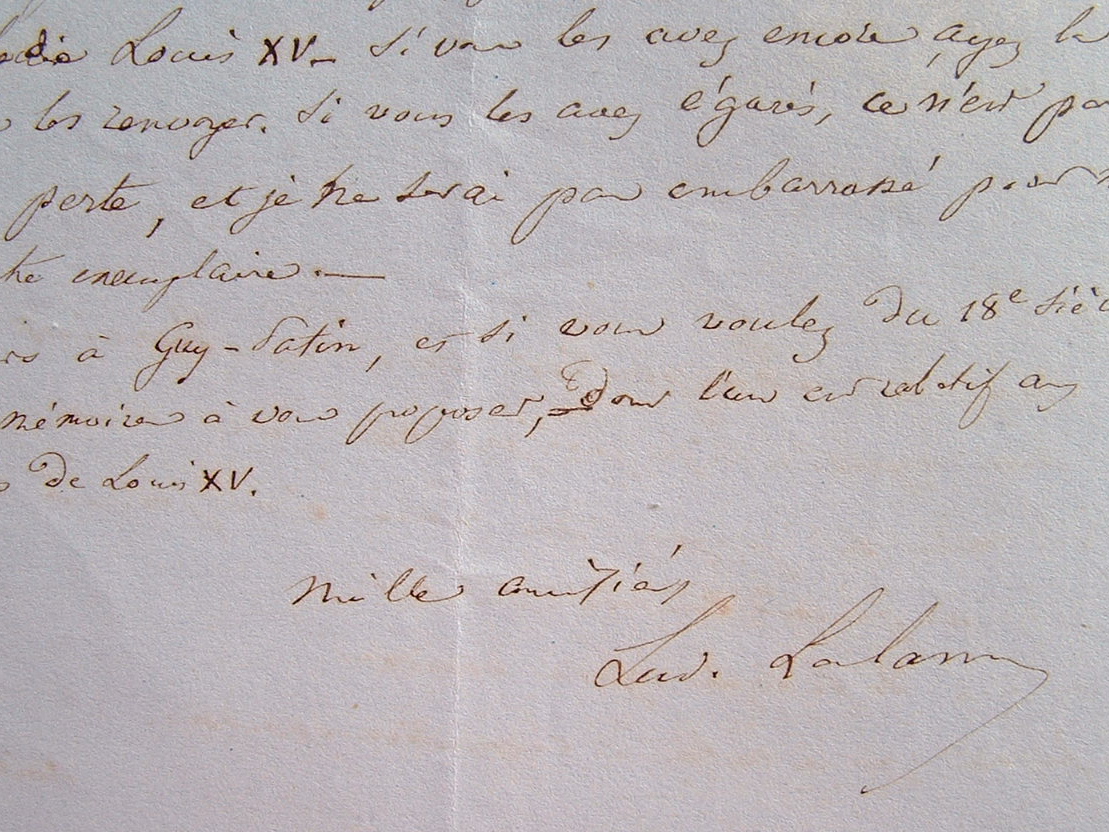 Louis XV. Si vous les avez encore, ayez la
les renvoyer. Si vous les avez égarés, ce n'est pas
perte, et je ne serai pas embarrassé pour
exemplaire. —
à Guy-Patin, et si vous voulez du 18e siècle
mémoires à vous proposer, dont l'un est relatif aux
de Louis XV.
Mille amitiés
Lud. Lalanne